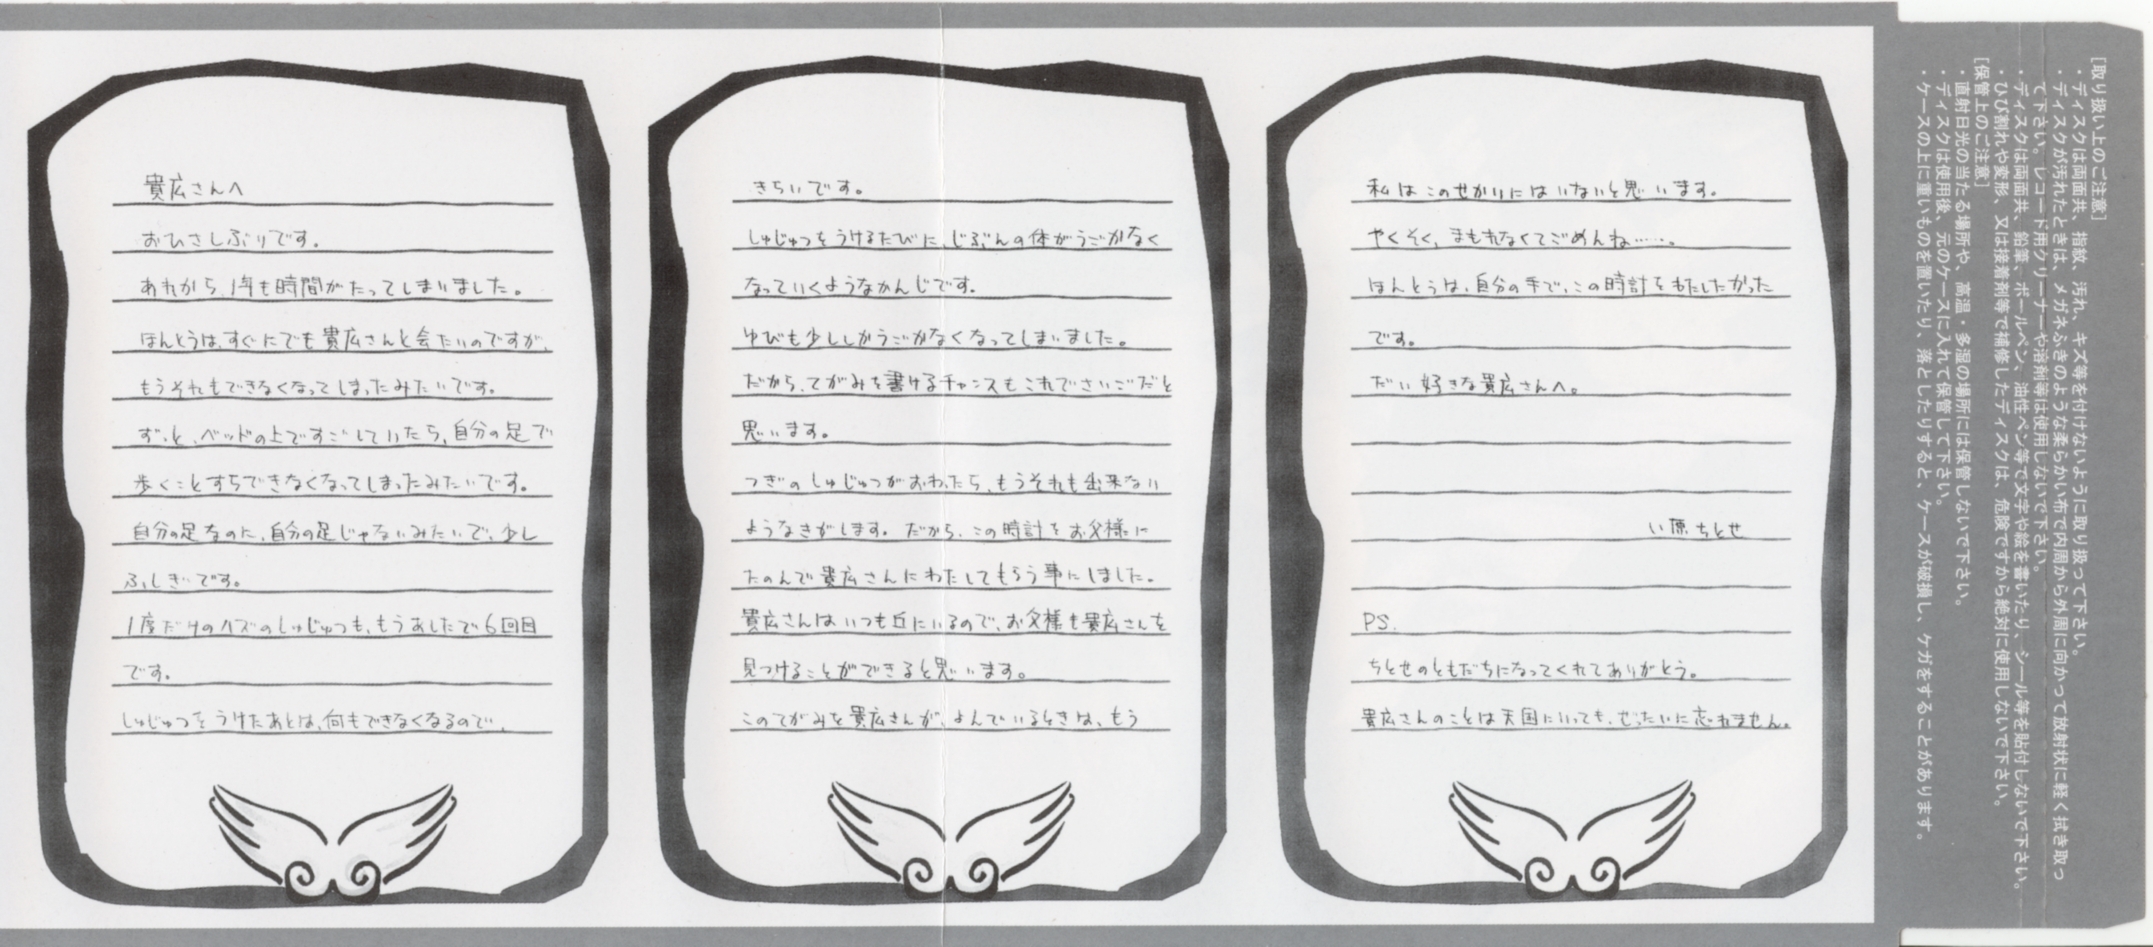 貴広さんへ
おひさしぶりです。
あれから、1年も時間がたってしまいました。
ほんとうは、すぐにでも貴広さんと会たいのですが、
もうそれもできなくなってしまったみたいです。
ずっと、ベッドの上ですごしていたら、自分の足で
歩くことすらできなくなってしまったみたいです。
自分の足なのに、自分の足じゃないみたいで、少し
ふしぎです。
1度だけのハズのしゅじゅつも、もうあしたで6回目
です。
しゅじゅつをうけたあとは、何もできなくなるので、
きらいです。
しゅじゅつをうけるたびに、じぶんの体がうごかなく
なっていくようなかんじです。
ゆびも少ししかうごかなくなってしまいました。
だから、てがみを書けるチャンスもこれでさいごだと
思います。
つぎのしゅじゅつがおわったら、もうそれも出来ない
ようなきがします。だから、この時計をお父様に
たのんで貴広さんにわたしてもらう事にしました。
貴広さんはいつも丘にいるので、お父様も貴広さんを
見つけることができると思います。
このてがみを貴広さんが、よんでいるときは、もう
私はこのせかいにはいないと思います。
やくそく、まもれなくてごめんね……。
ほんとうは、自分の手で、この時計をわたしたかった
です。
だい好きな貴広さんへ。
い原ちとせ
PS.
ちとせのともだちになってくれてありがとう。
貴広さんのことは天国にいっても、ぜったいに忘れません。
[取り扱い上のご注意]
・ディスクは両面共、指紋、汚れ、キズ等を付けないように取り扱って下さい。
・ディスクが汚れたときは、メガネふきのような柔らかい布で内周から外周に向かって放射状に軽く拭き取っ
て下さい。レコード用クリーナーや溶剤等は使用しないで下さい。
・ディスクは両面共、鉛筆、ボールペン、油性ペン等で文字や絵を書いたり、シール等を貼付しないで下さい。
・ひび割れや変形、又は接着剤等で補修したディスクは、危険ですから絶対に使用しないで下さい。
[保管上のご注意]
・直射日光の当たる場所や、高温・多湿の場所には保管しないで下さい。
・ディスクは使用後、元のケースに入れて保管して下さい。
・ケースの上に重いものを置いたり、落としたりすると、ケースが破損し、ケガをすることがあります。